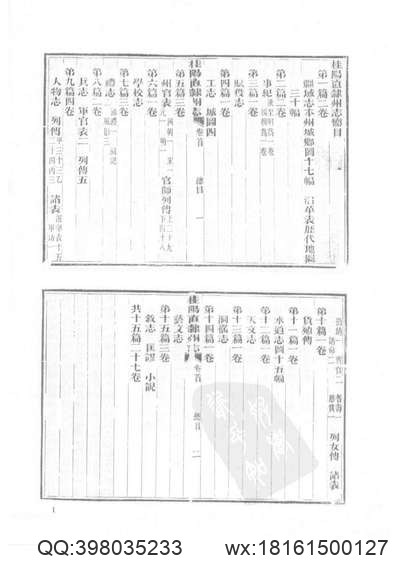 桂陽直隸州志總目
第一篇二卷
疆域志本州城鄉圖十七幅 沿革表歷代地圖
三十幅
第二篇二卷
事紀
第三篇一卷
賦役志
第四篇一卷
工志 城圖四
桂陽直隸州志 卷首 總目 一
第五篇三卷
州官表 官師列傳
第六篇一卷
學校志
第七篇三卷
禮志
第八篇二卷
兵志 軍官表二 列傳五
第九篇四卷
人物志 列傳 諸表
列女傳 諸表
第十篇一卷
貨殖傳
第十一篇一卷
水道志圖十五幅
第十二篇一卷
天文志
第十三篇一卷
洞猺志
第十四篇一卷
桂陽直隸州志 卷首 總目 二
藝文志
第十五篇三卷
敘志 匡謬 小說
共十五篇二十七卷
1
QQ:398035233
wx:18161500127